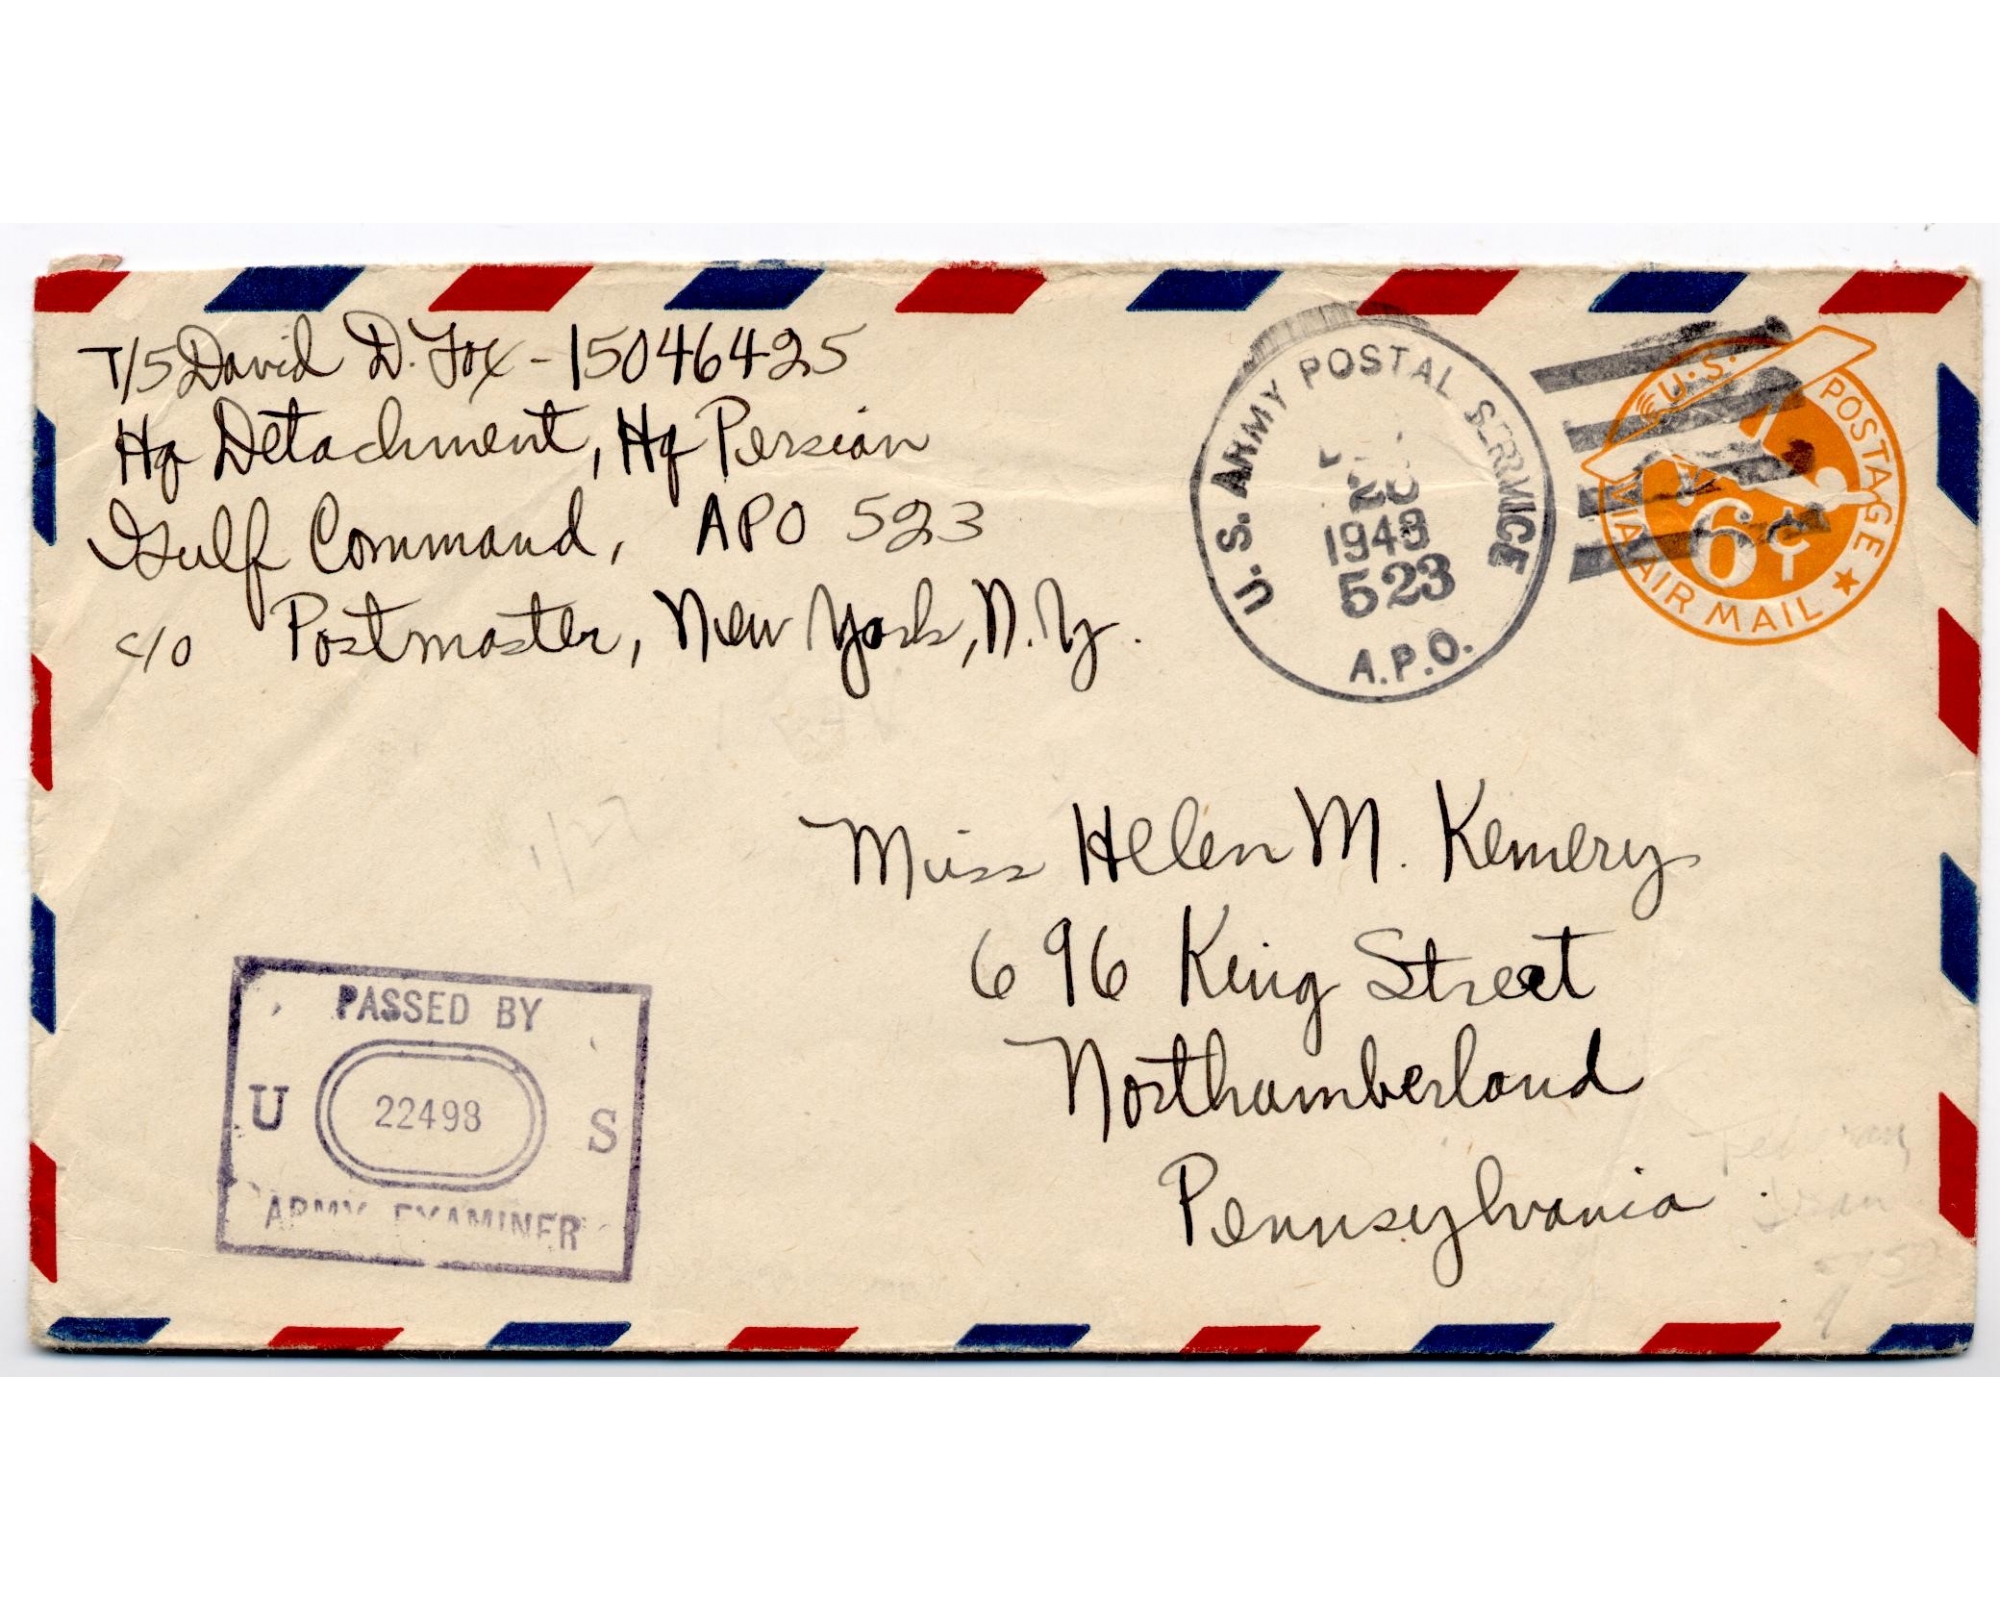 T/5 David D. Fox - 15046425
Hq Detachment, Hq Persian
Gulf Command, APO 523
c/o Postmaster, New York, N.Y.
U.S. ARMY POSTAL SERVICE
1943
523
A.P.O.
U.S. POSTAGE
6¢
VIA AIR MAIL
Miss Helen M. Kemery
696 King Street
Northumberland
Pennsylvania
PASSED BY
U 22498 S
ARMY EXAMINER
Teheran
Iran